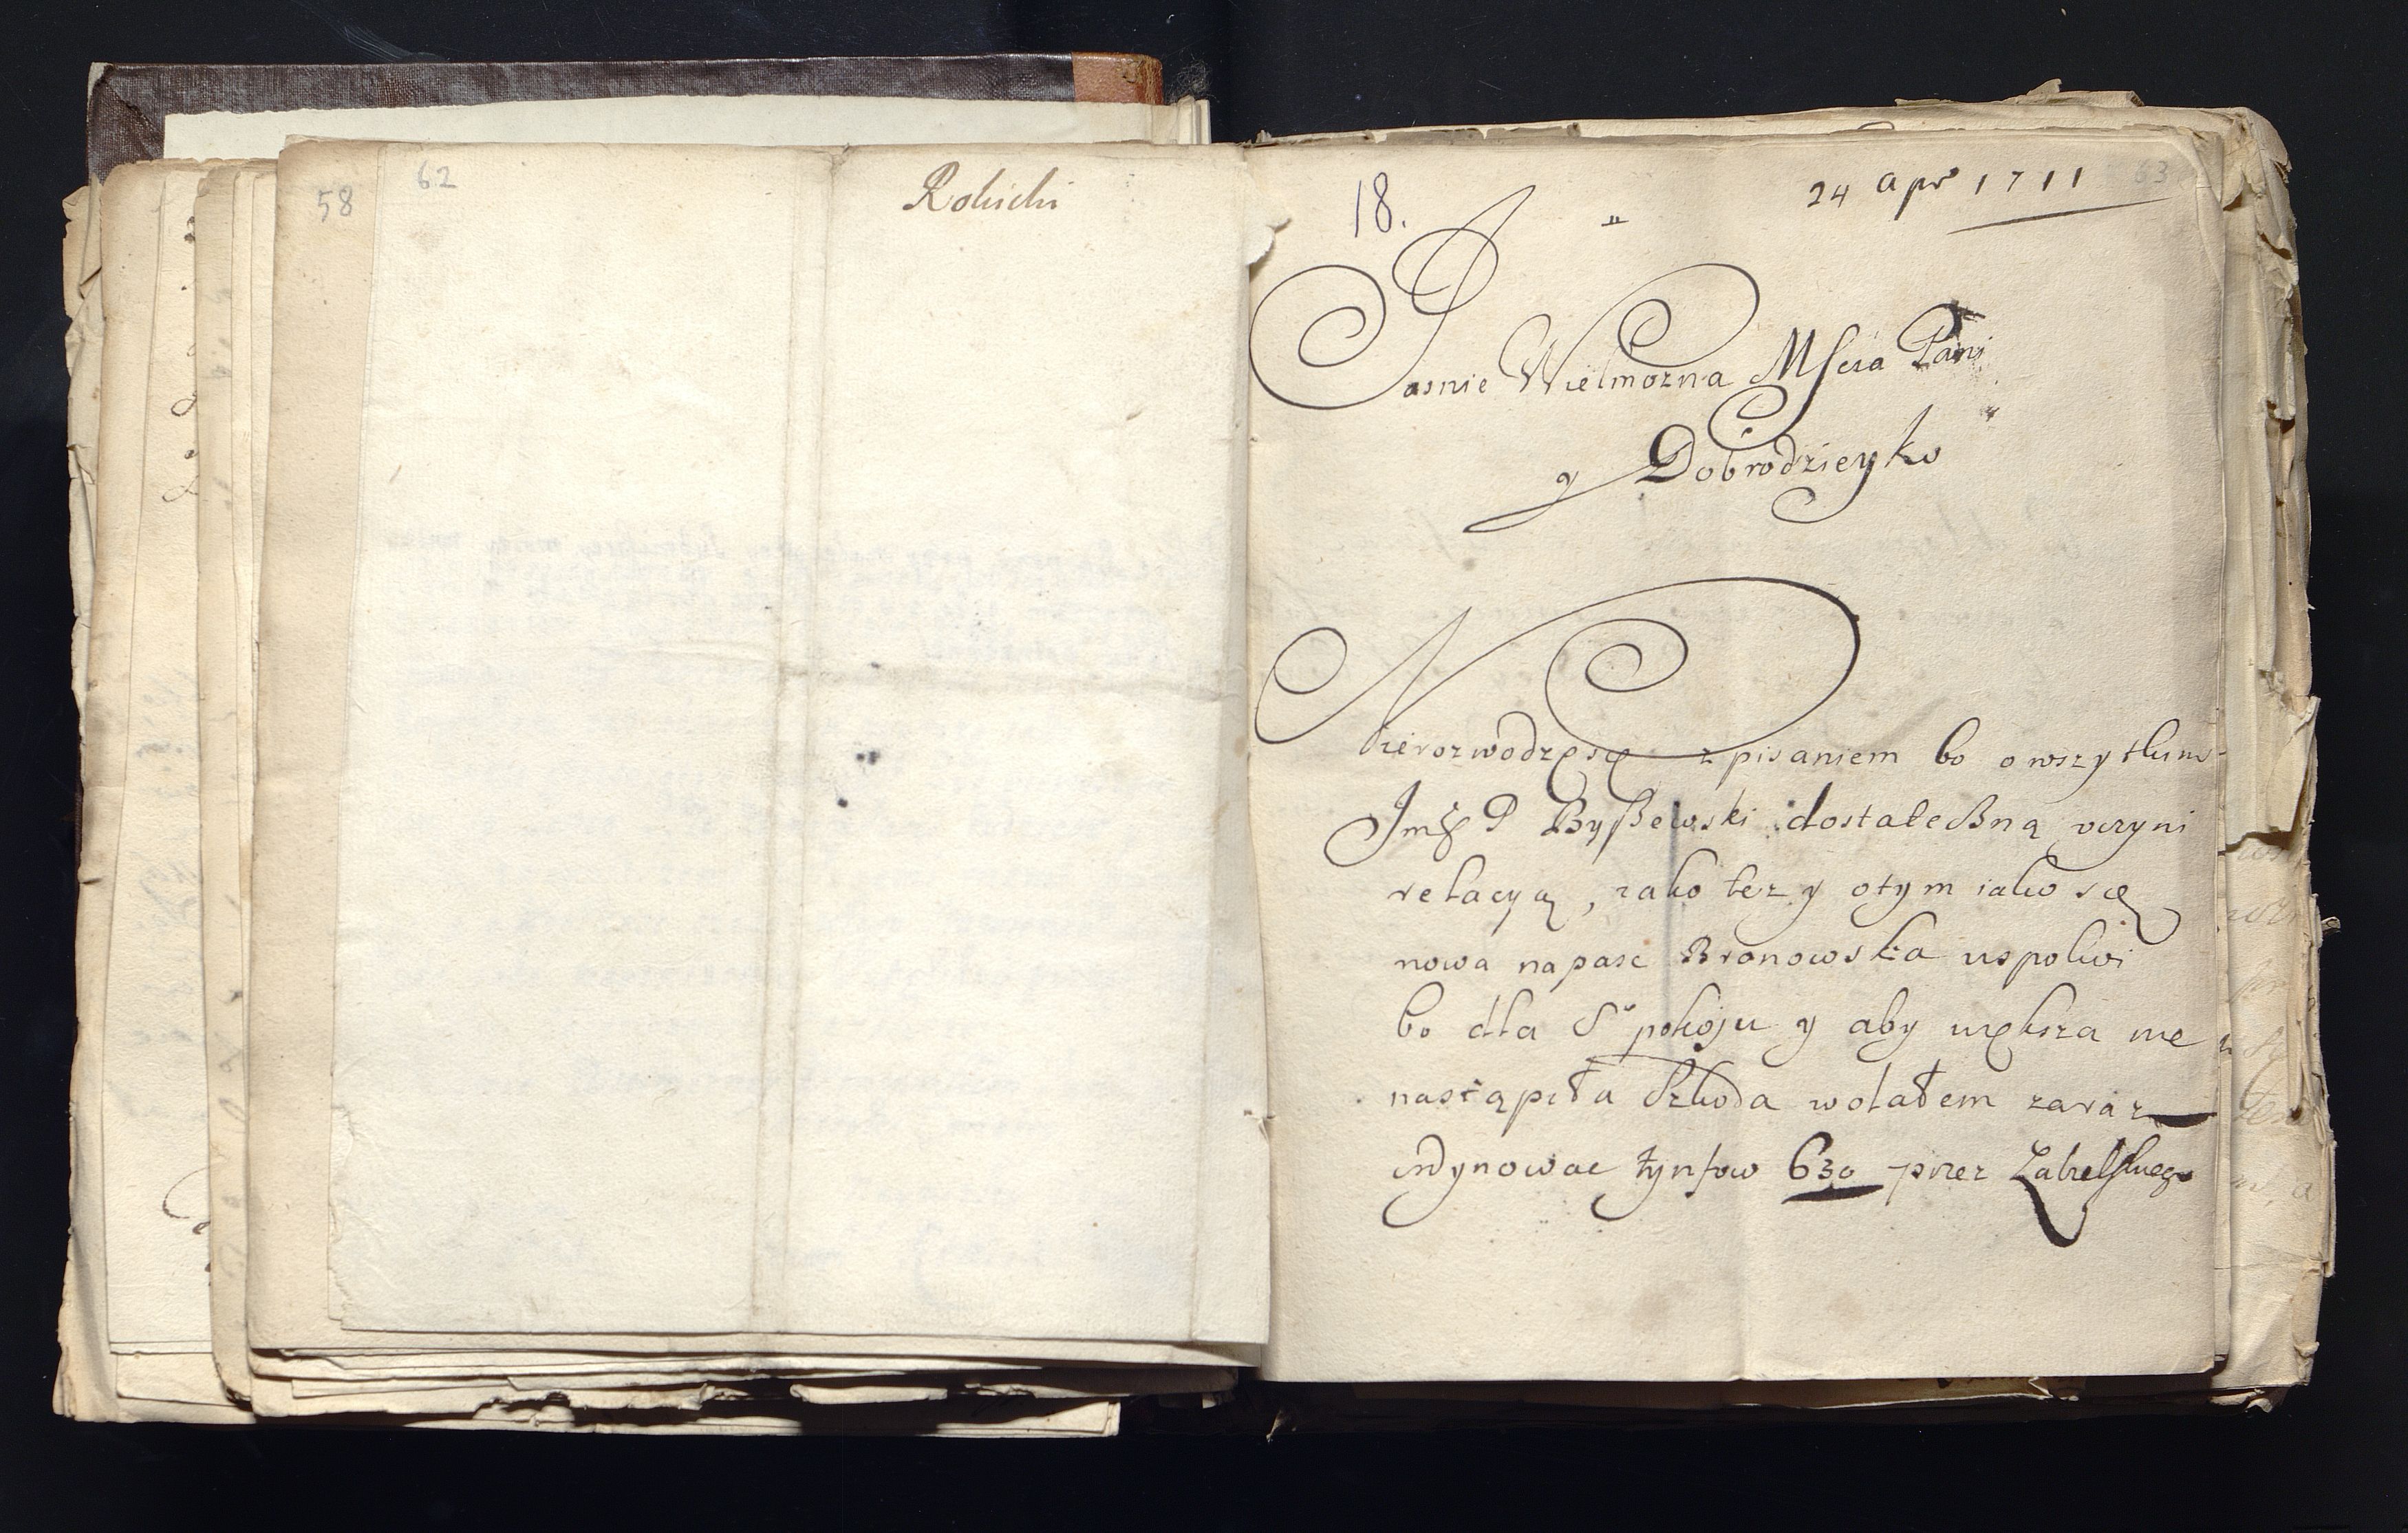 58
62
Rokicki
18.
24 Apr 1711
63
Jasnie Wielmozna MScia Pani
y Dobrodzieyko
Nierozwodzęsię z pisaniem bo o wszytkim
Jmć P Byszewski dostateczną uczyni
relacyą, iako tez y otym iako się
nowa napasc Bronowska uspokoi
bo dla S° pokoju y aby większa nie
nastąpiła Szkoda wolałem zaraz
ordynowac tynfow 630 przez Zabielskiego